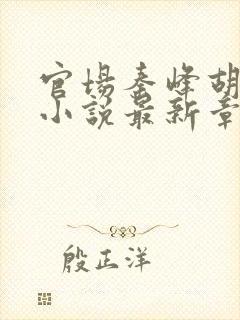 官场秦峰胡
小说最新章
殷正洋